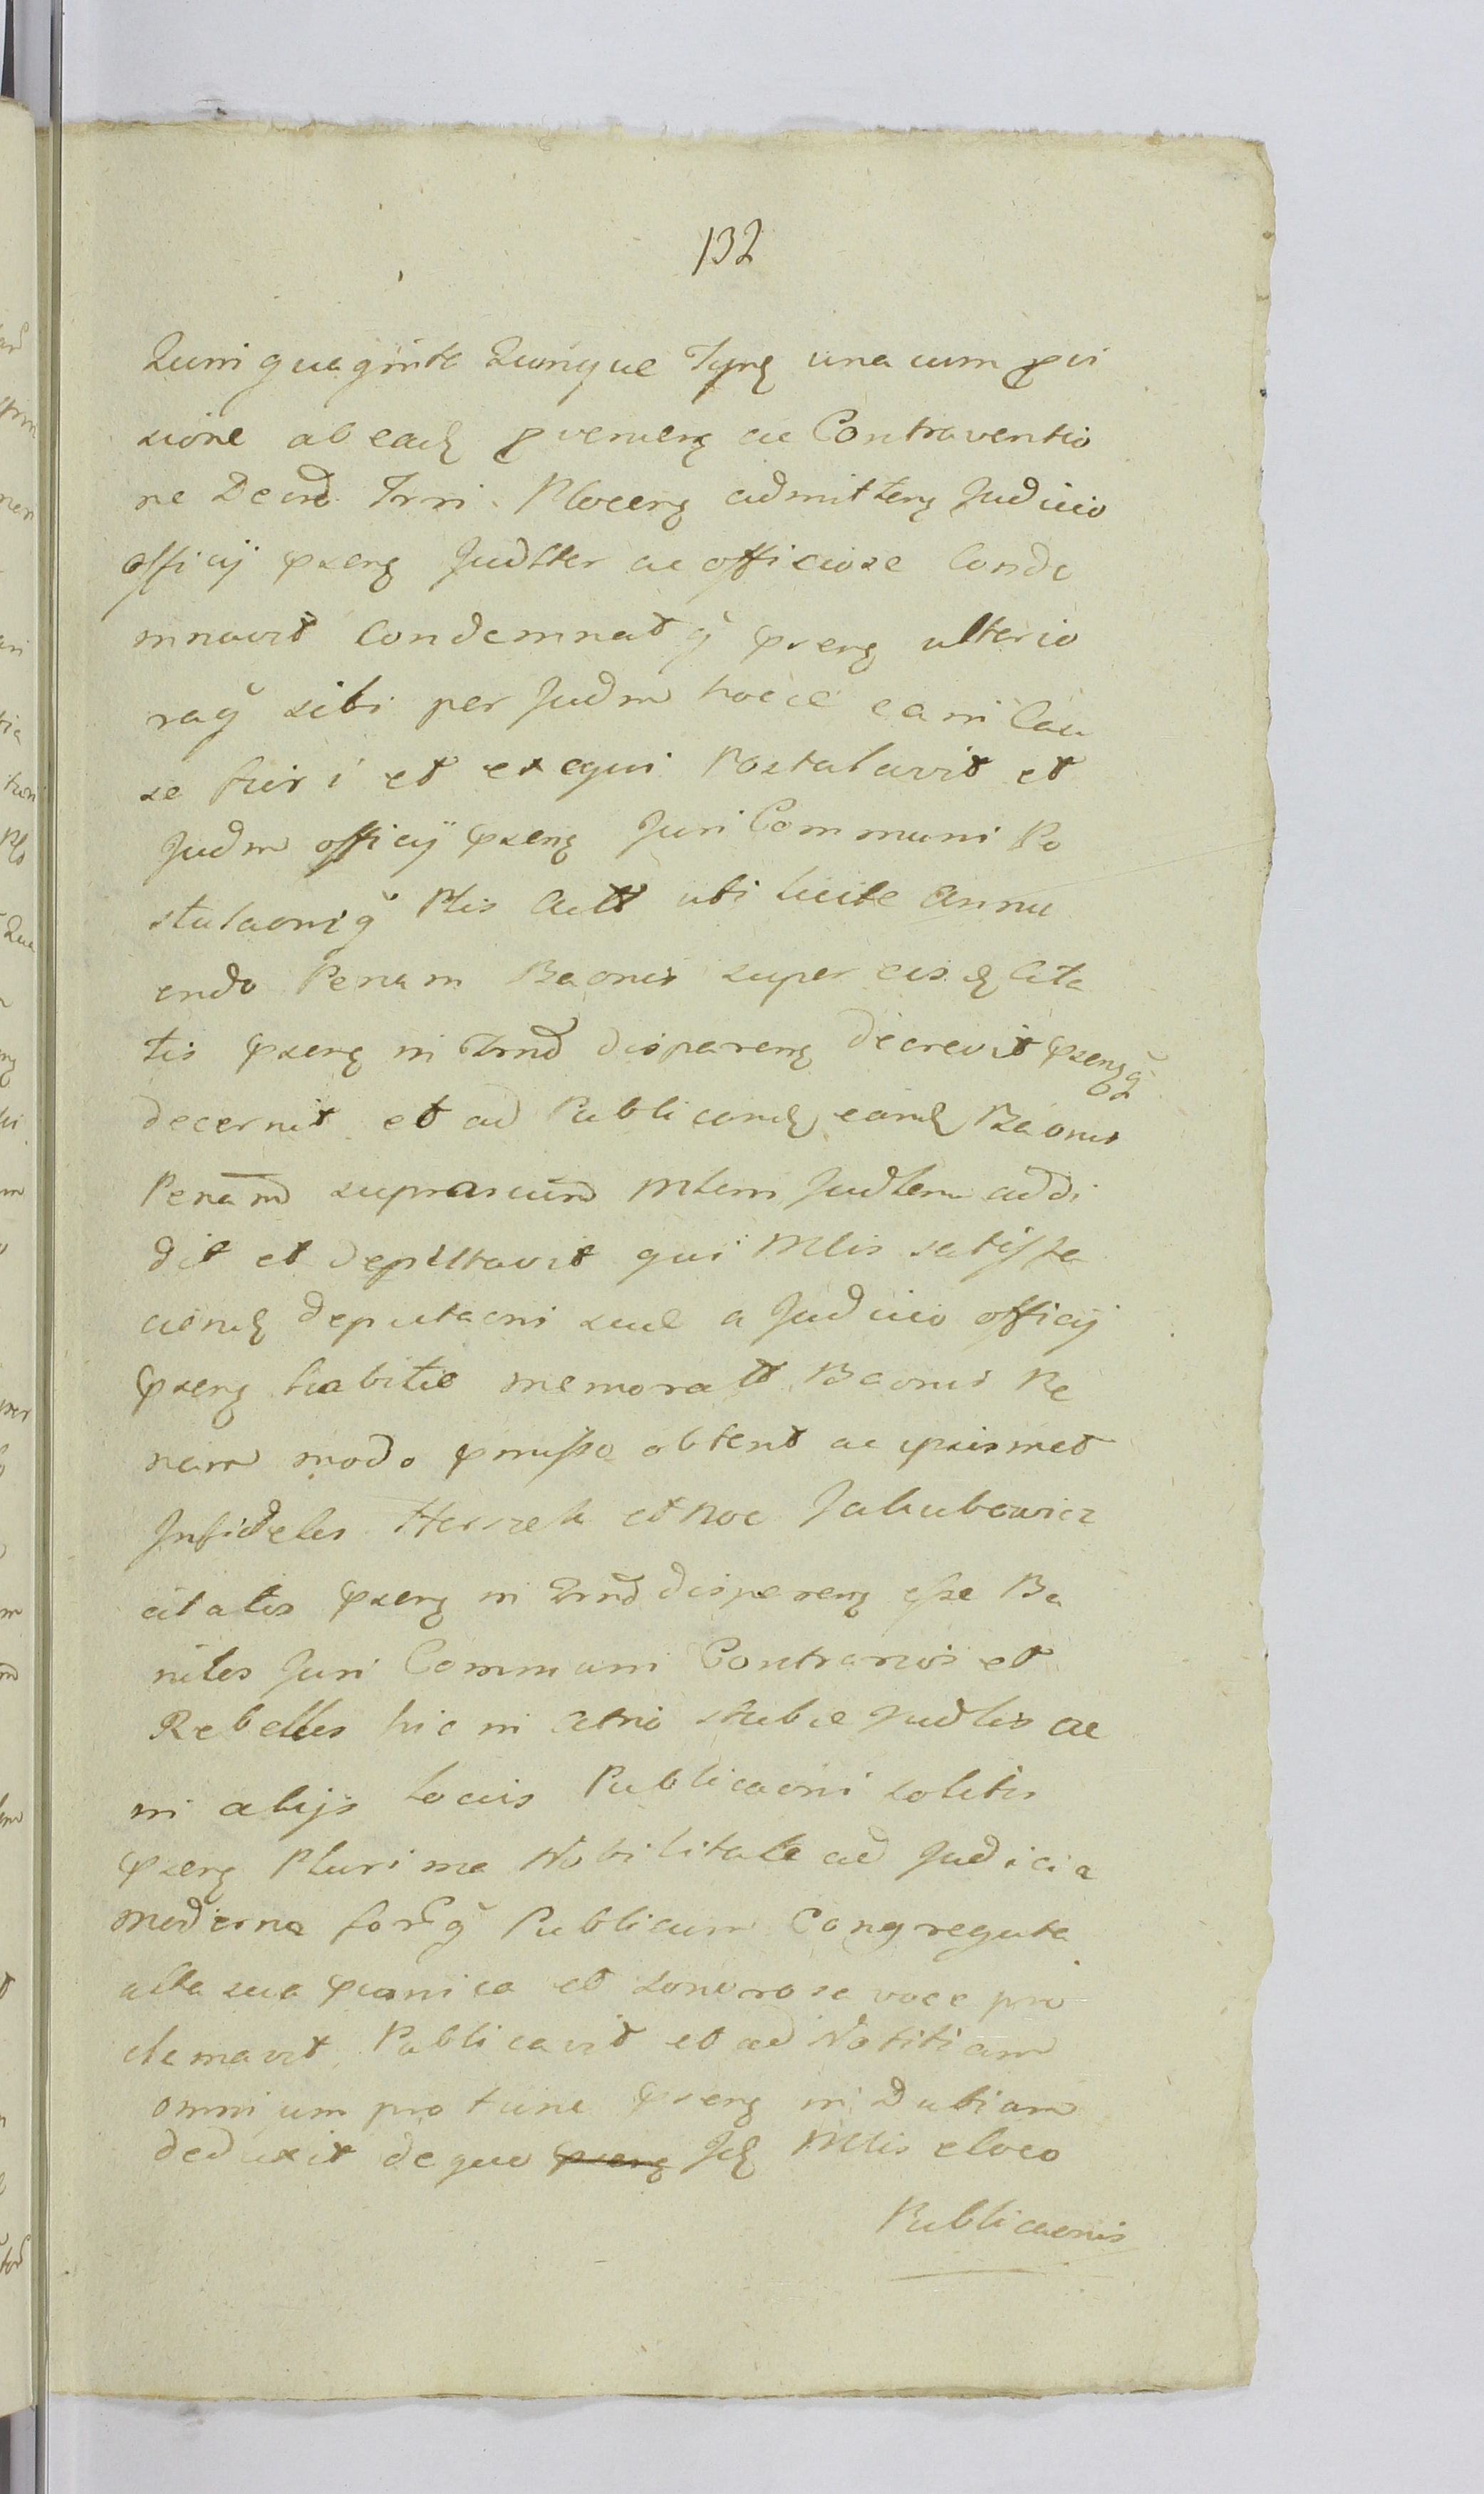 132
Quinquaginta Quinque Tynf una cum pvi
sione ab eadq pvenienq ac Contraventio
ne Decrō Trri. Plocenq admittenq Judicio
officij psenq Judltter ac officiose Conde
mnavit Condemnatq psenq ulterio
raq sibi per Judm hocce ea in Cau
sa fieri et exequi Postulavit et
Judm officij psenq Juri Communi Po
stulaoniq Ptis Actt uti licite Annu
endo Penam Baonis super eisdq Cita
tis psenq in Trnō disparenq decrevit psenqq
decernit et ad Publicandq eandq Baonis
Penam suprascriō Mlem Judlem addi
dit et deputavit qui Mlis satisfa
ciendq deputaoni suae a Judicio officij
psenq habitae memoratt Baonis Pe
nam modo pmisso obtent ac ipsismet
Infideles Herszek et Noe Jakubowicz
citatis psenq in Trnō disparenq esse Ba
nitos Juri Communi Contrarios et
Rebelles hic in Atrio stubae Judlis ac
in alijs Locis Publicaoni solitis
psenq Plurima Nobilitate ad Judicia
moderna forq Publicum Congregata
alta sua pconica et sonorosa voce pro
clamavit Publicavit et ad Notitiam
omnium pro tunc psenq indubiam
deduxit de quo psenq Jdq Mlis e loco
Publicaonis